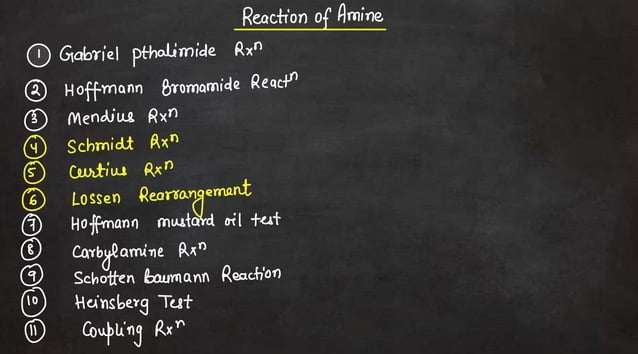 Reaction of Amine
① Gabriel pthalimide Rxⁿ
② Hoffmann Bromamide Reactⁿ
③ Mendius Rxⁿ
④ Schmidt Rxⁿ
⑤ Curtius Rxⁿ
⑥ Lossen Rearrangement
⑦ Hoffmann mustard oil test
⑧ Carbylamine Rxⁿ
⑨ Schotten Baumann Reaction
⑩ Heinsberg Test
⑪ Coupling Rxⁿ